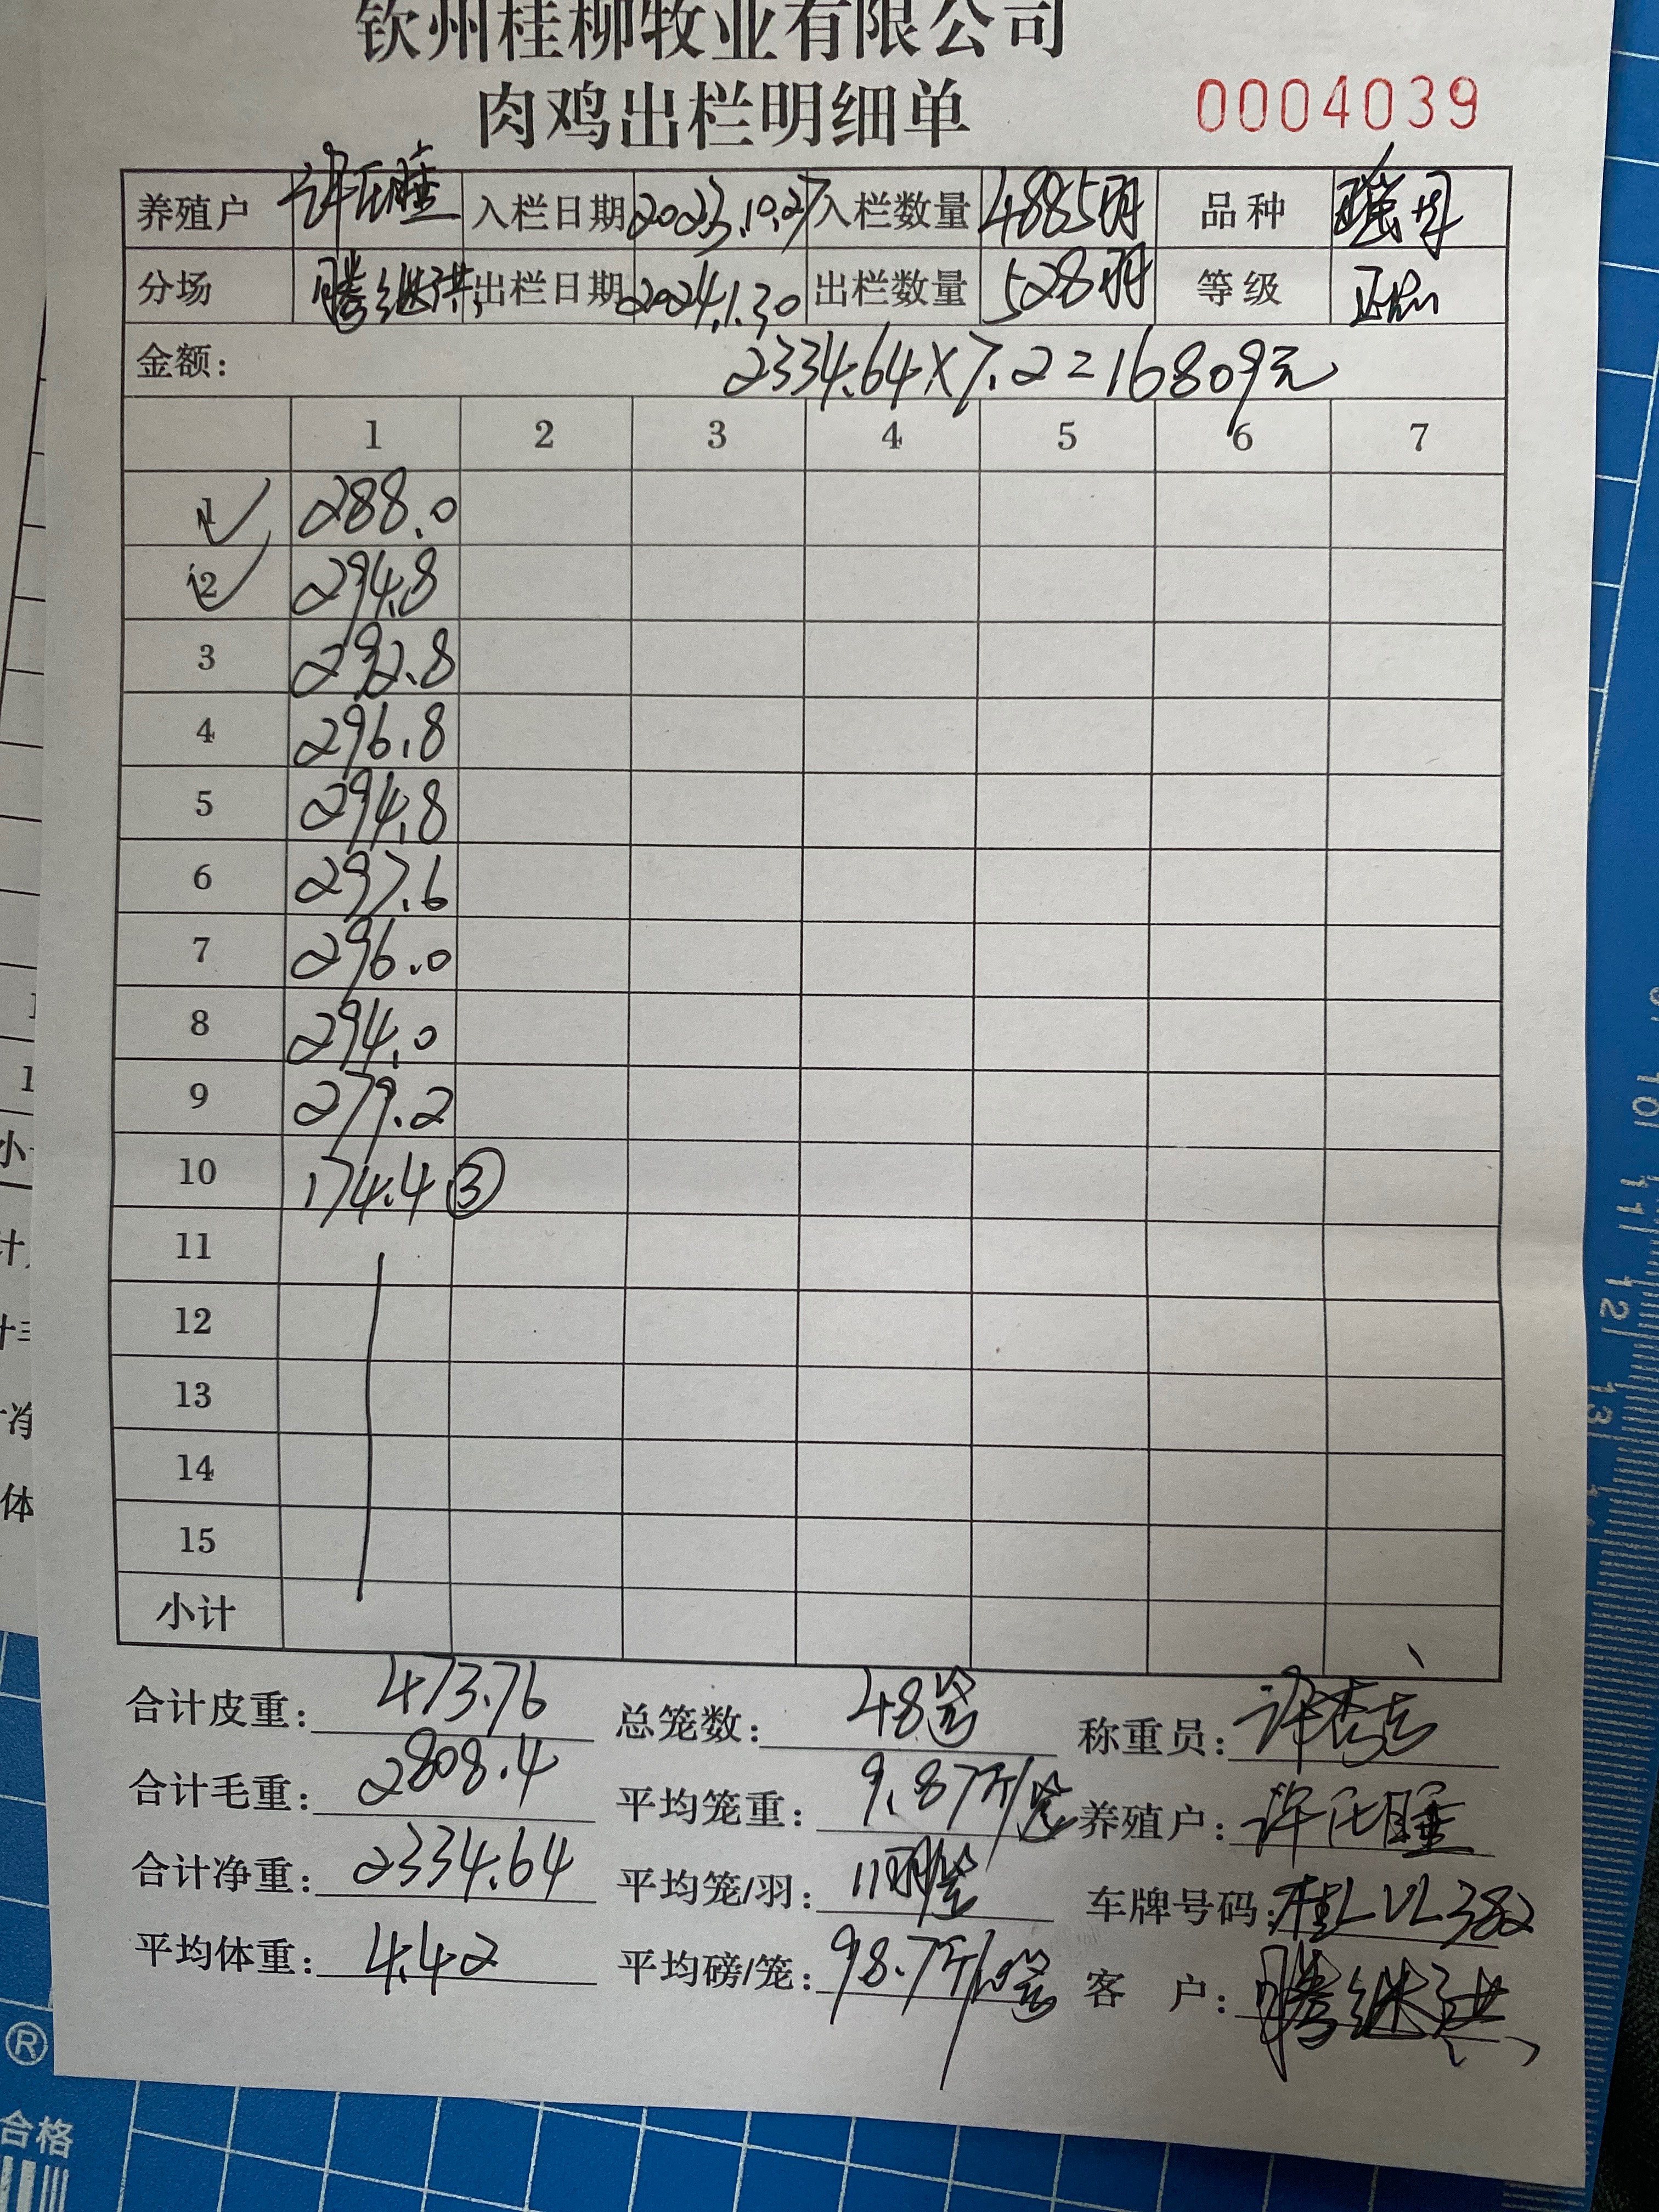 钦州桂柳牧业有限公司
肉鸡出栏明细单 0004039
养殖户 许氏睡 入栏日期 2023.10.27 入栏数量 4885羽 品种 瑶母
分场 腾继洪 出栏日期 2024.1.30 出栏数量 528羽 等级 正品
金额: 2334.64×7.2=16809元
1 2 3 4 5 6 7
1 288.0
2 294.8
3 292.8
4 296.8
5 294.8
6 297.6
7 296.0
8 294.0
9 279.2
10 174.4 ③
11
12
13
14
15
小计
合计皮重: 473.76 总笼数: 48笼 称重员: 许
合计毛重: 2808.4 平均笼重: 9.87斤/笼 养殖户: 许氏睡
合计净重: 2334.64 平均笼/羽: 11羽/笼 车牌号码: 桂LVL382
平均体重: 4.42 平均磅/笼: 98.7斤/10笼 客户: 腾继洪
合格
®
小
计
净
体
10
11
12
13